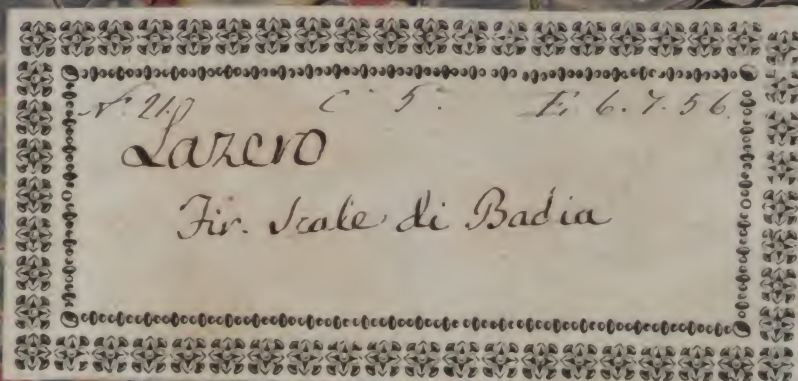 N. 210 C. 5. E. 6.7.56.
Lazero
Fir. Scale di Badia